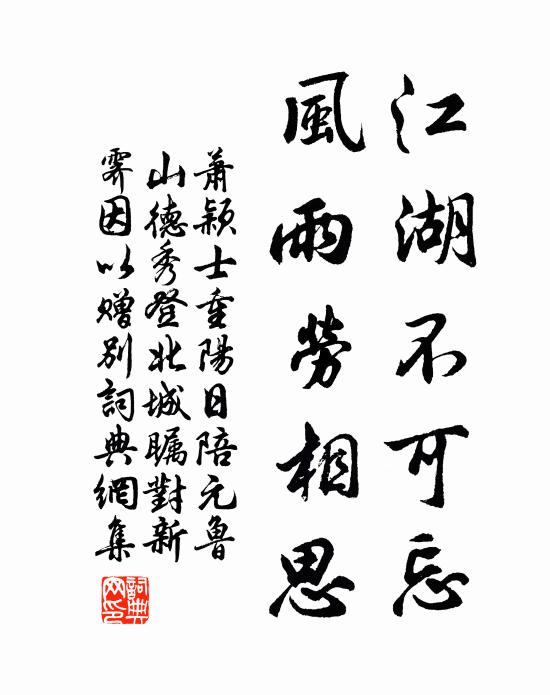 江湖不可忘
風雨勞相思
蕭穎士重陽日陪元魯
山德秀登北城瞩對新
霽因以贈別詞典網集
詞典
网印